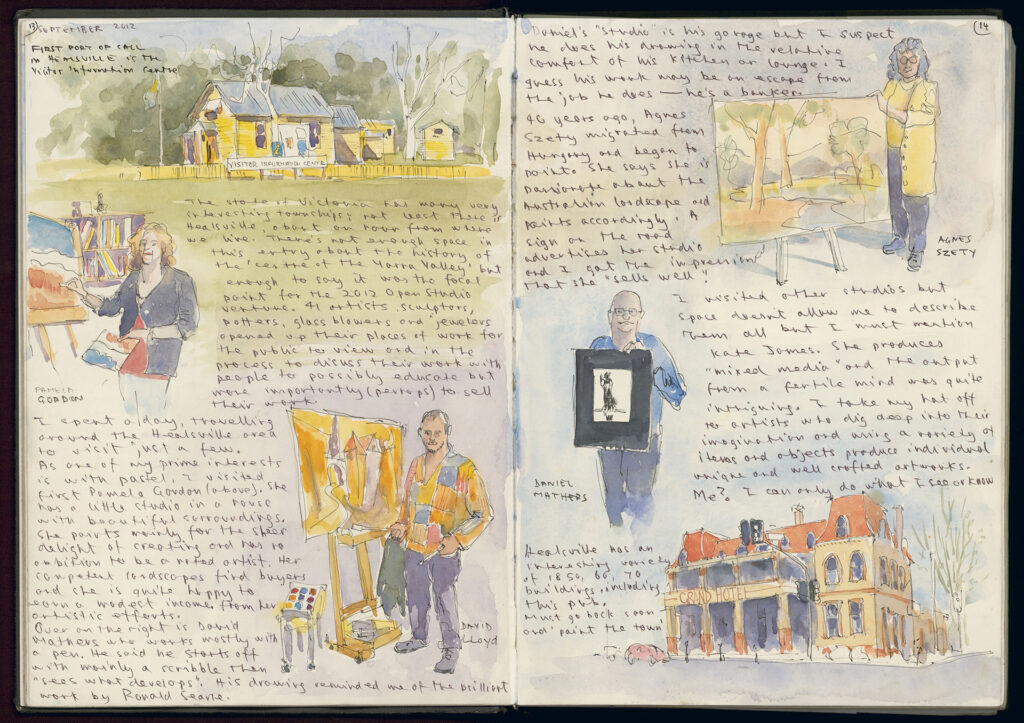 13
SEPTEMBER 2012
FIRST PORT OF CALL
IN HEALSVILLE IS THE
Visitor Information Centre
VISITOR INFORMATION CENTRE
The state of Victoria has many very
interesting townships; not least there is
Healsville, about an hour from where
we live. There's not enough space in
this entry about the history of
the 'centre of the Yarra Valley' but
enough to say it was the focal
point for the 2012 Open Studio
venture. 41 artists, sculptors,
potters, glass blowers and jewelers
opened up their places of work for
the public to view and in the
process to discuss their work with
people to possibly educate but
more importantly (perhaps) to sell
their work.
PAMELA
GORDON
I spent a day, travelling
around the Healsville area
to visit just a few.
As one of my prime interests
is with pastel, I visited
first Pamela Gordon (above). She
has a little studio in a house
with beautiful surroundings.
She paints mainly for the sheer
delight of creating and has no
ambition to be a noted artist. Her
competent landscapes find buyers
and she is quite happy to
earn a modest income from her
artistic efforts.
Over on the right is David
Mathers who works mostly with
a pen. He said he starts off
with mainly a scribble then
"sees what develops". His drawing reminded me of the brilliant
work by Ronald Searle.
DAVID
Lloyd
14
Daniel's "studio" is his garage but I suspect
he does his drawing in the relative
comfort of his kitchen or lounge. I
guess his work may be an escape from
the job he does — he's a banker.
40 years ago, Agnes
Szety migrated from
Hungary and began to
paint. She says she is
passionate about the
Australian landscape and
paints accordingly. A
sign on the road
advertises her studio
and I got the impression
that she "sells well".
AGNES
SZETY
I visited other studios but
space doesnt allow me to describe
them all but I must mention
Kate James. She produces
"mixed media" and the output
from a fertile mind was quite
intriguing. I take my hat off
to artists who dig deep into their
imagination and using a variety of
items and objects produce individual
unique and well crafted artworks.
Me? I can only do what I see or know
DANIEL
MATHERS
Healsville has an
interesting variety
of 1850, 60, 70
buildings, including
this pub.
Must go back soon
and 'paint the town'
GRAND HOTEL